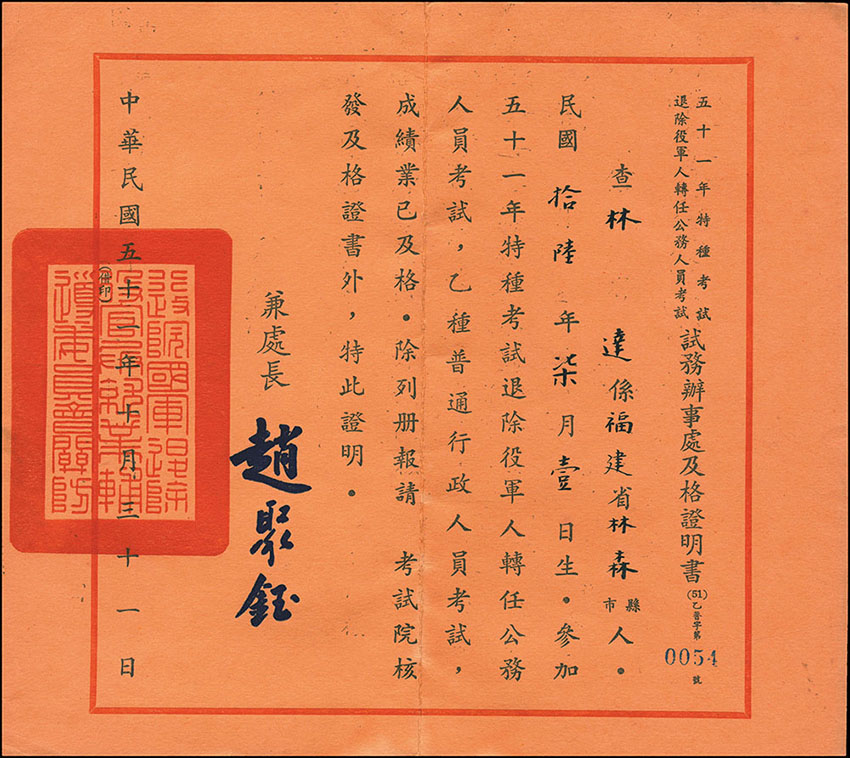 五十一年特種考試
退除役軍人轉任公務人員考試
試務辦事處及格證明書
(51)乙普字第
0054
號
查林 達係福建省林森縣市人。
民國拾陸年柒月壹日生。參加
五十一年特種考試退除役軍人轉任公務
人員考試，乙種普通行政人員考試，
成績業已及格。除列册報請 考試院核
發及格證書外，特此證明。
兼處長 趙聚鈺
中華民國五十一年十月三十一日
(借印)